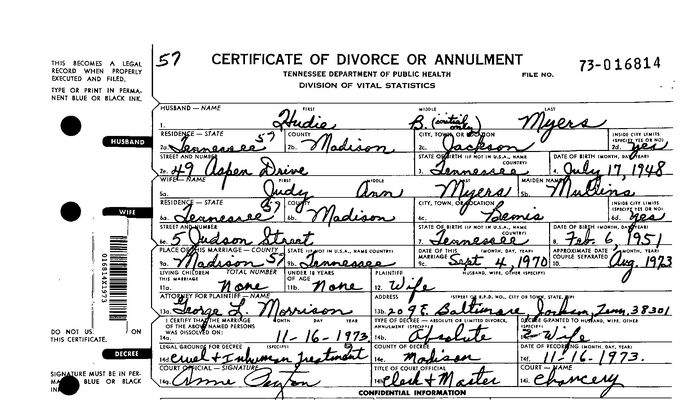 57 CERTIFICATE OF DIVORCE OR ANNULMENT
TENNESSEE DEPARTMENT OF PUBLIC HEALTH FILE NO. 73-016814
DIVISION OF VITAL STATISTICS
THIS BECOMES A LEGAL
RECORD WHEN PROPERLY
EXECUTED AND FILED.
TYPE OR PRINT IN PERMA-
NENT BLUE OR BLACK INK.
HUSBAND — NAME FIRST MIDDLE LAST
1. Hudie B. (initial only) Myers
HUSBAND
RESIDENCE — STATE COUNTY CITY, TOWN, OR LOCATION INSIDE CITY LIMITS (SPECIFY YES OR NO)
2a. Tennessee 57 2b. Madison 2c. Jackson 2d. yes
STREET AND NUMBER STATE OF BIRTH (IF NOT IN U.S.A., NAME COUNTRY) DATE OF BIRTH (MONTH, DAY, YEAR)
2e. 49 Aspen Drive 3. Tennessee 4. July 17, 1948
WIFE — NAME FIRST MIDDLE LAST MAIDEN NAME
5a. Judy Ann Myers 5b. Mullins
WIFE
RESIDENCE — STATE COUNTY CITY, TOWN, OR LOCATION INSIDE CITY LIMITS (SPECIFY YES OR NO)
6a. Tennessee 57 6b. Madison 6c. Bemis 6d. yes
STREET AND NUMBER STATE OF BIRTH (IF NOT IN U.S.A., NAME COUNTRY) DATE OF BIRTH (MONTH, DAY, YEAR)
6e. 5 Judson Street 7. Tennessee 8. Feb. 6, 1951
PLACE OF THIS MARRIAGE — COUNTY STATE (IF NOT IN U.S.A., NAME COUNTRY) DATE OF THIS MARRIAGE (MONTH, DAY, YEAR) APPROXIMATE DATE COUPLE SEPARATED (MONTH, YEAR)
9a. Madison 57 9b. Tennessee 9c. Sept 4, 1970 10. Aug. 1973
LIVING CHILDREN THIS MARRIAGE TOTAL NUMBER UNDER 18 YEARS OF AGE PLAINTIFF HUSBAND, WIFE, OTHER (SPECIFY)
11a. None 11b. None 12. Wife
016814X1973
ATTORNEY FOR PLAINTIFF — NAME ADDRESS (STREET OR R.F.D. NO., CITY OR TOWN, STATE, ZIP)
13a. George L. Morrison 13b. 209 E Baltimore Jackson, Tenn. 38301
DO NOT US ON
THIS CERTIFICATE.
I CERTIFY THAT THE MARRIAGE OF THE ABOVE NAMED PERSONS WAS DISSOLVED ON: MONTH DAY YEAR TYPE OF DECREE — ABSOLUTE OR LIMITED DIVORCE, ANNULMENT (SPECIFY) DECREE GRANTED TO HUSBAND, WIFE, OTHER (SPECIFY)
14a. 11-16-1973 14b. Absolute Wife
DECREE
LEGAL GROUNDS FOR DECREE (SPECIFY) COUNTY OF DECREE DATE OF RECORDING (MONTH, DAY, YEAR)
14d. Cruel & Inhuman Treatment 14e. Madison 14f. 11-16-1973.
SIGNATURE MUST BE IN PER-
MA BLUE OR BLACK
INK
COURT OFFICIAL — SIGNATURE TITLE OF COURT OFFICIAL COURT — NAME
14g. Anne Peyton 14h. Clerk & Master 14i. Chancery
CONFIDENTIAL INFORMATION